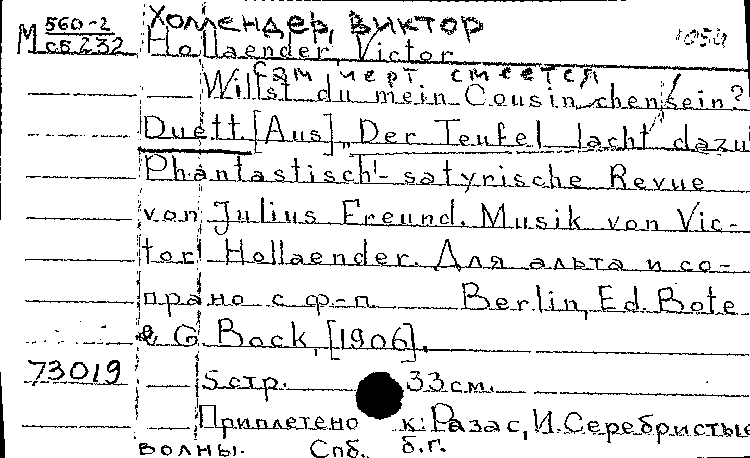 Холлендер, Виктор
М 560-2
сб.232 Hollaender, Victor 1054
Сам черт смеется
Willst du mein Cousinchen sein?
Duett. [Aus] „Der Teufel lacht dazu
Phantastisch-satyrische Revue
von Julius Freund. Musik von Vic-
tor Hollaender. Для альта и со-
прано с ф-п. Berlin, Ed. Bote
& G. Bock, [1906].
73019 5 стр. 33 см.
Приплетено к: Разас, И. Серебристые
волны. Спб. б.г.